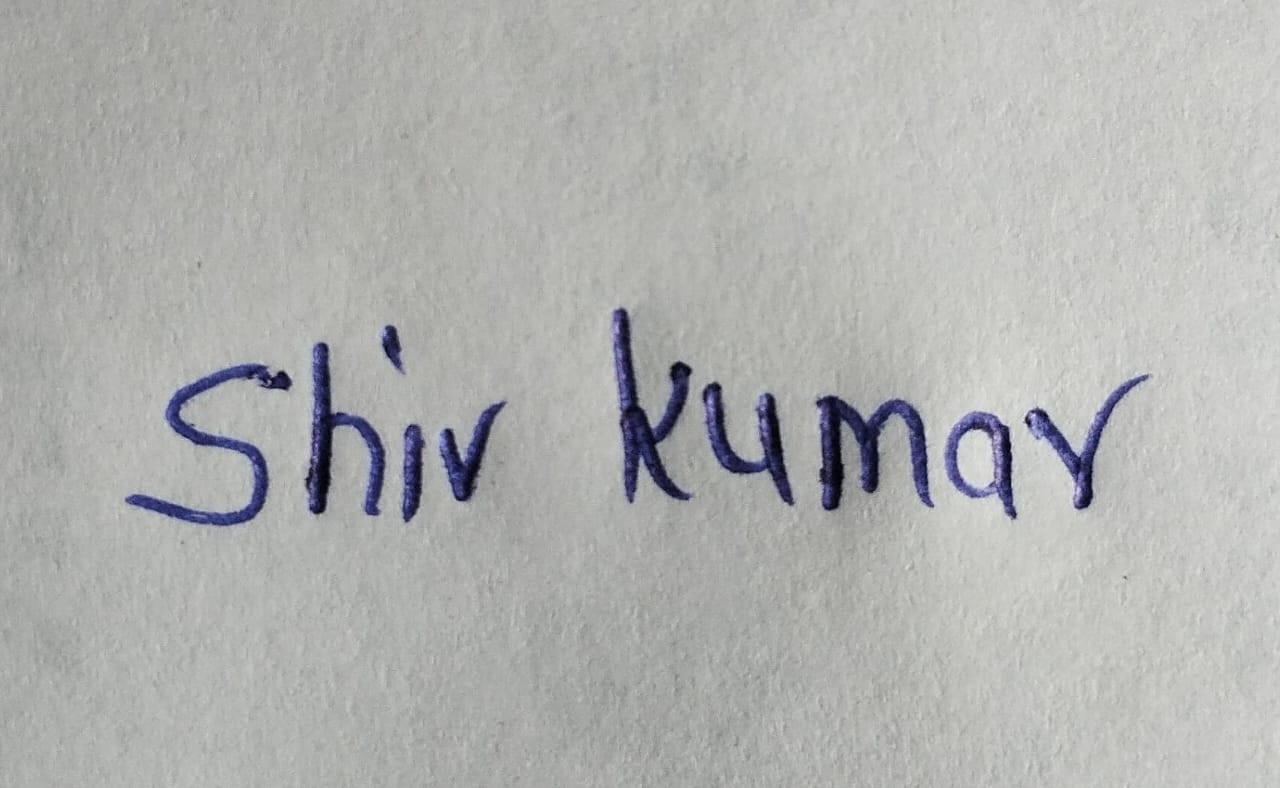 Shiv kumar